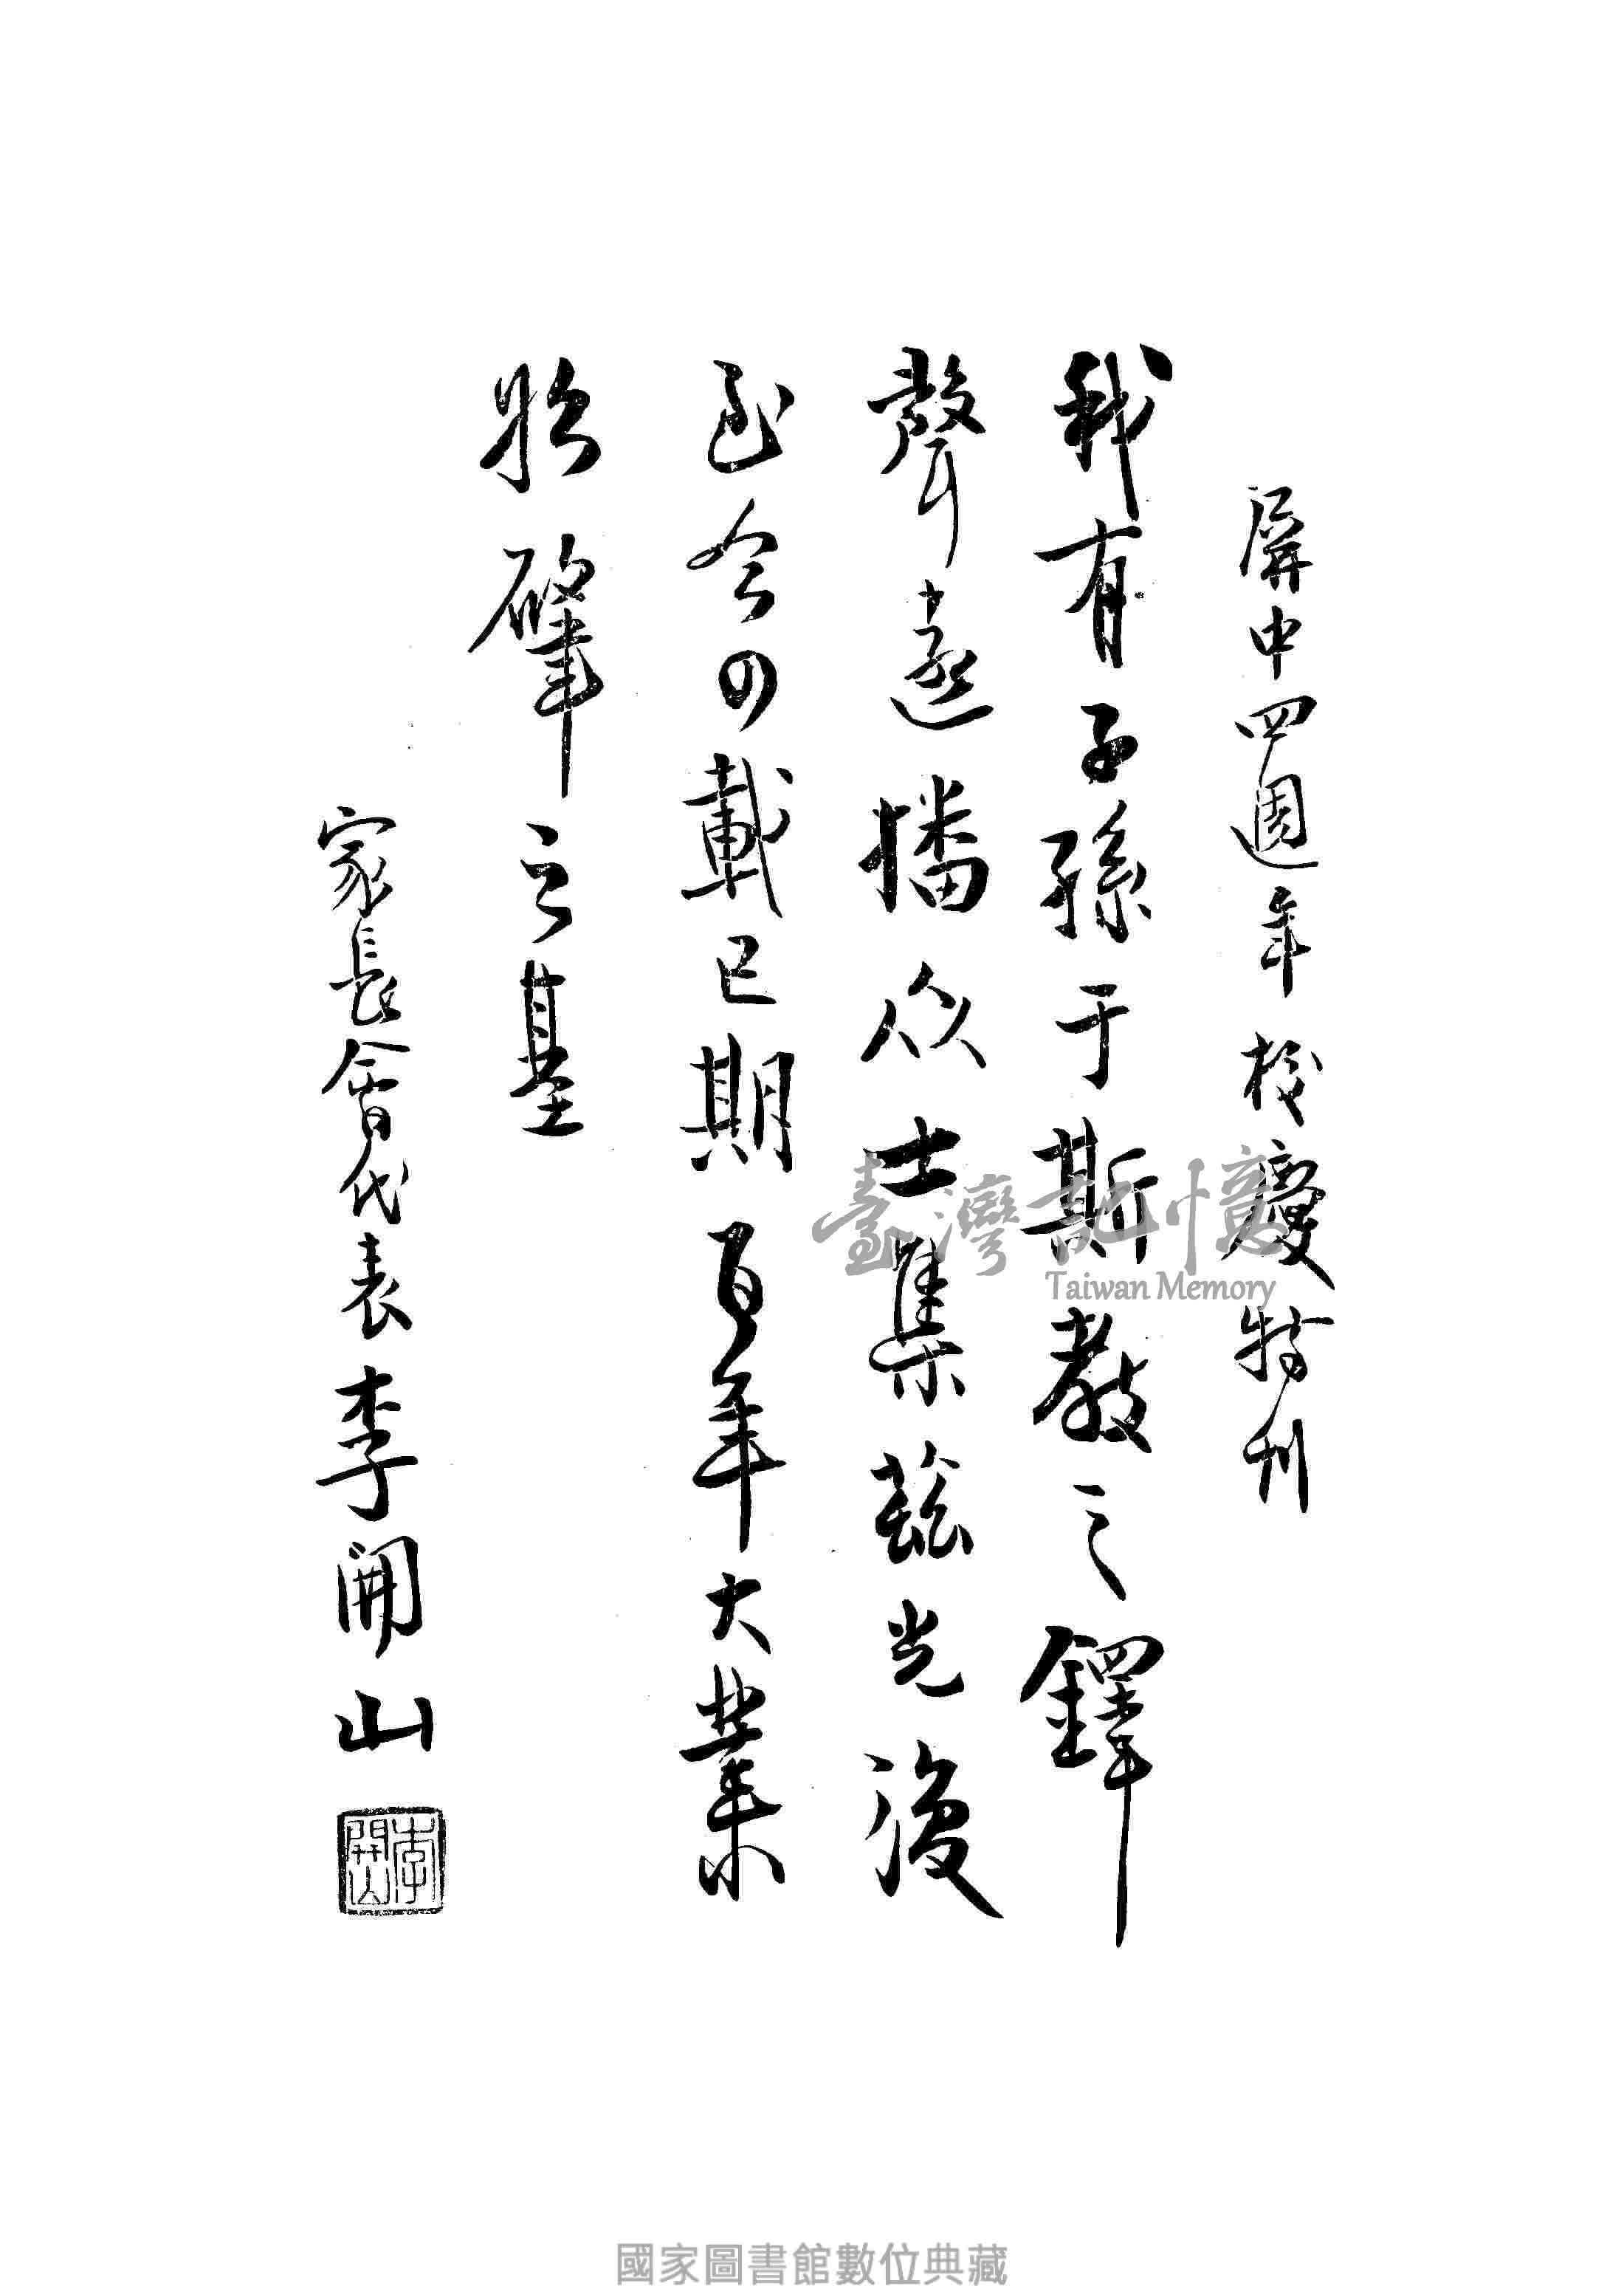 屏中四週年校慶特刊
我有子孫于斯教之鐸
聲遠播众士集茲光後
至今四載已期百年大業
始肇之基
家長會代表李開山
李開山
臺灣記憶
Taiwan Memory
國家圖書館數位典藏